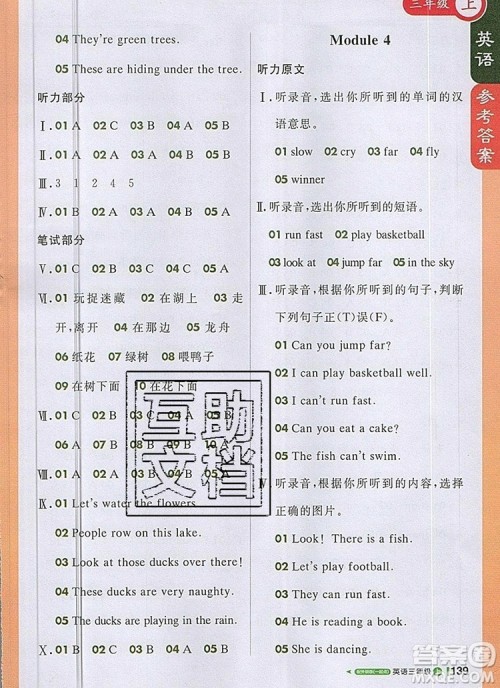 三年级 上
英语
参考答案
04 They're green trees.
05 These are hiding under the tree.
听力部分
Ⅰ. 01 A 02 C 03 B 04 A 05 B
Ⅱ. 01 A 02 B 03 A 04 B 05 A
Ⅲ. 3 1 2 4 5
Ⅳ. 01 A 02 B 03 B 04 A 05 B
笔试部分
Ⅴ. 01 C 02 B 03 C 04 C 05 A
Ⅵ. 01 玩捉迷藏 02 在湖上 03 走
开,离开 04 在那边 05 龙舟
06 纸花 07 绿树 08 喂鸭子
09 在树下面 10 在花下面
Ⅶ. 01 04 A 05 B
06 A 07 10 B
Ⅷ. 01 A 02 04 A 05 A
Ⅸ. 01 Let's water the flowers.
02 People row on this lake.
03 Look at those ducks over there!
04 These ducks are very naughty.
05 The ducks are playing in the rain.
Ⅹ. 01 C 02 D 03 B 04 E 05 A
Module 4
听力原文
Ⅰ. 听录音,选出你所听到的单词的汉
语意思。
01 slow 02 cry 03 far 04 fly
05 winner
Ⅱ. 听录音,选出你所听到的短语。
01 run fast 02 play basketball
03 look at 04 jump far 05 in the sky
Ⅲ. 听录音,根据你所听到的句子,判断
下列句子正(T)误(F)。
01 Can you jump far?
02 I can play basketball well.
03 I can't run fast.
04 Can you eat a cake?
05 The fish can't swim.
Ⅳ. 听录音,根据你所听到的内容,选择
正确的图片。
01 Look! There is a fish.
02 Let's play football.
03 He is reading a book.
04 He can run fast.
05 She is singing.
英语三年级 上 139
互助
文档
答案圈